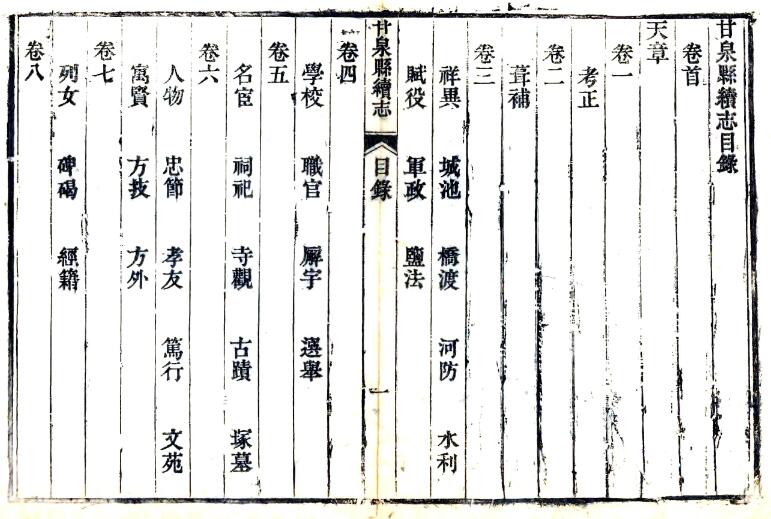 甘泉縣續志目錄
卷首
天章
卷一
考正
卷二
葺補
卷三
祥異 城池 橋渡 河防 水利
賦役 軍政 鹽法
甘泉縣續志 目錄 一
卷四
學校 職官 廨宇 選舉
卷五
名宦 祠祀 寺觀 古蹟 塚墓
卷六
人物 忠節 孝友 篤行 文苑
寓賢 方技 方外
卷七
列女 碑碣 經籍
卷八